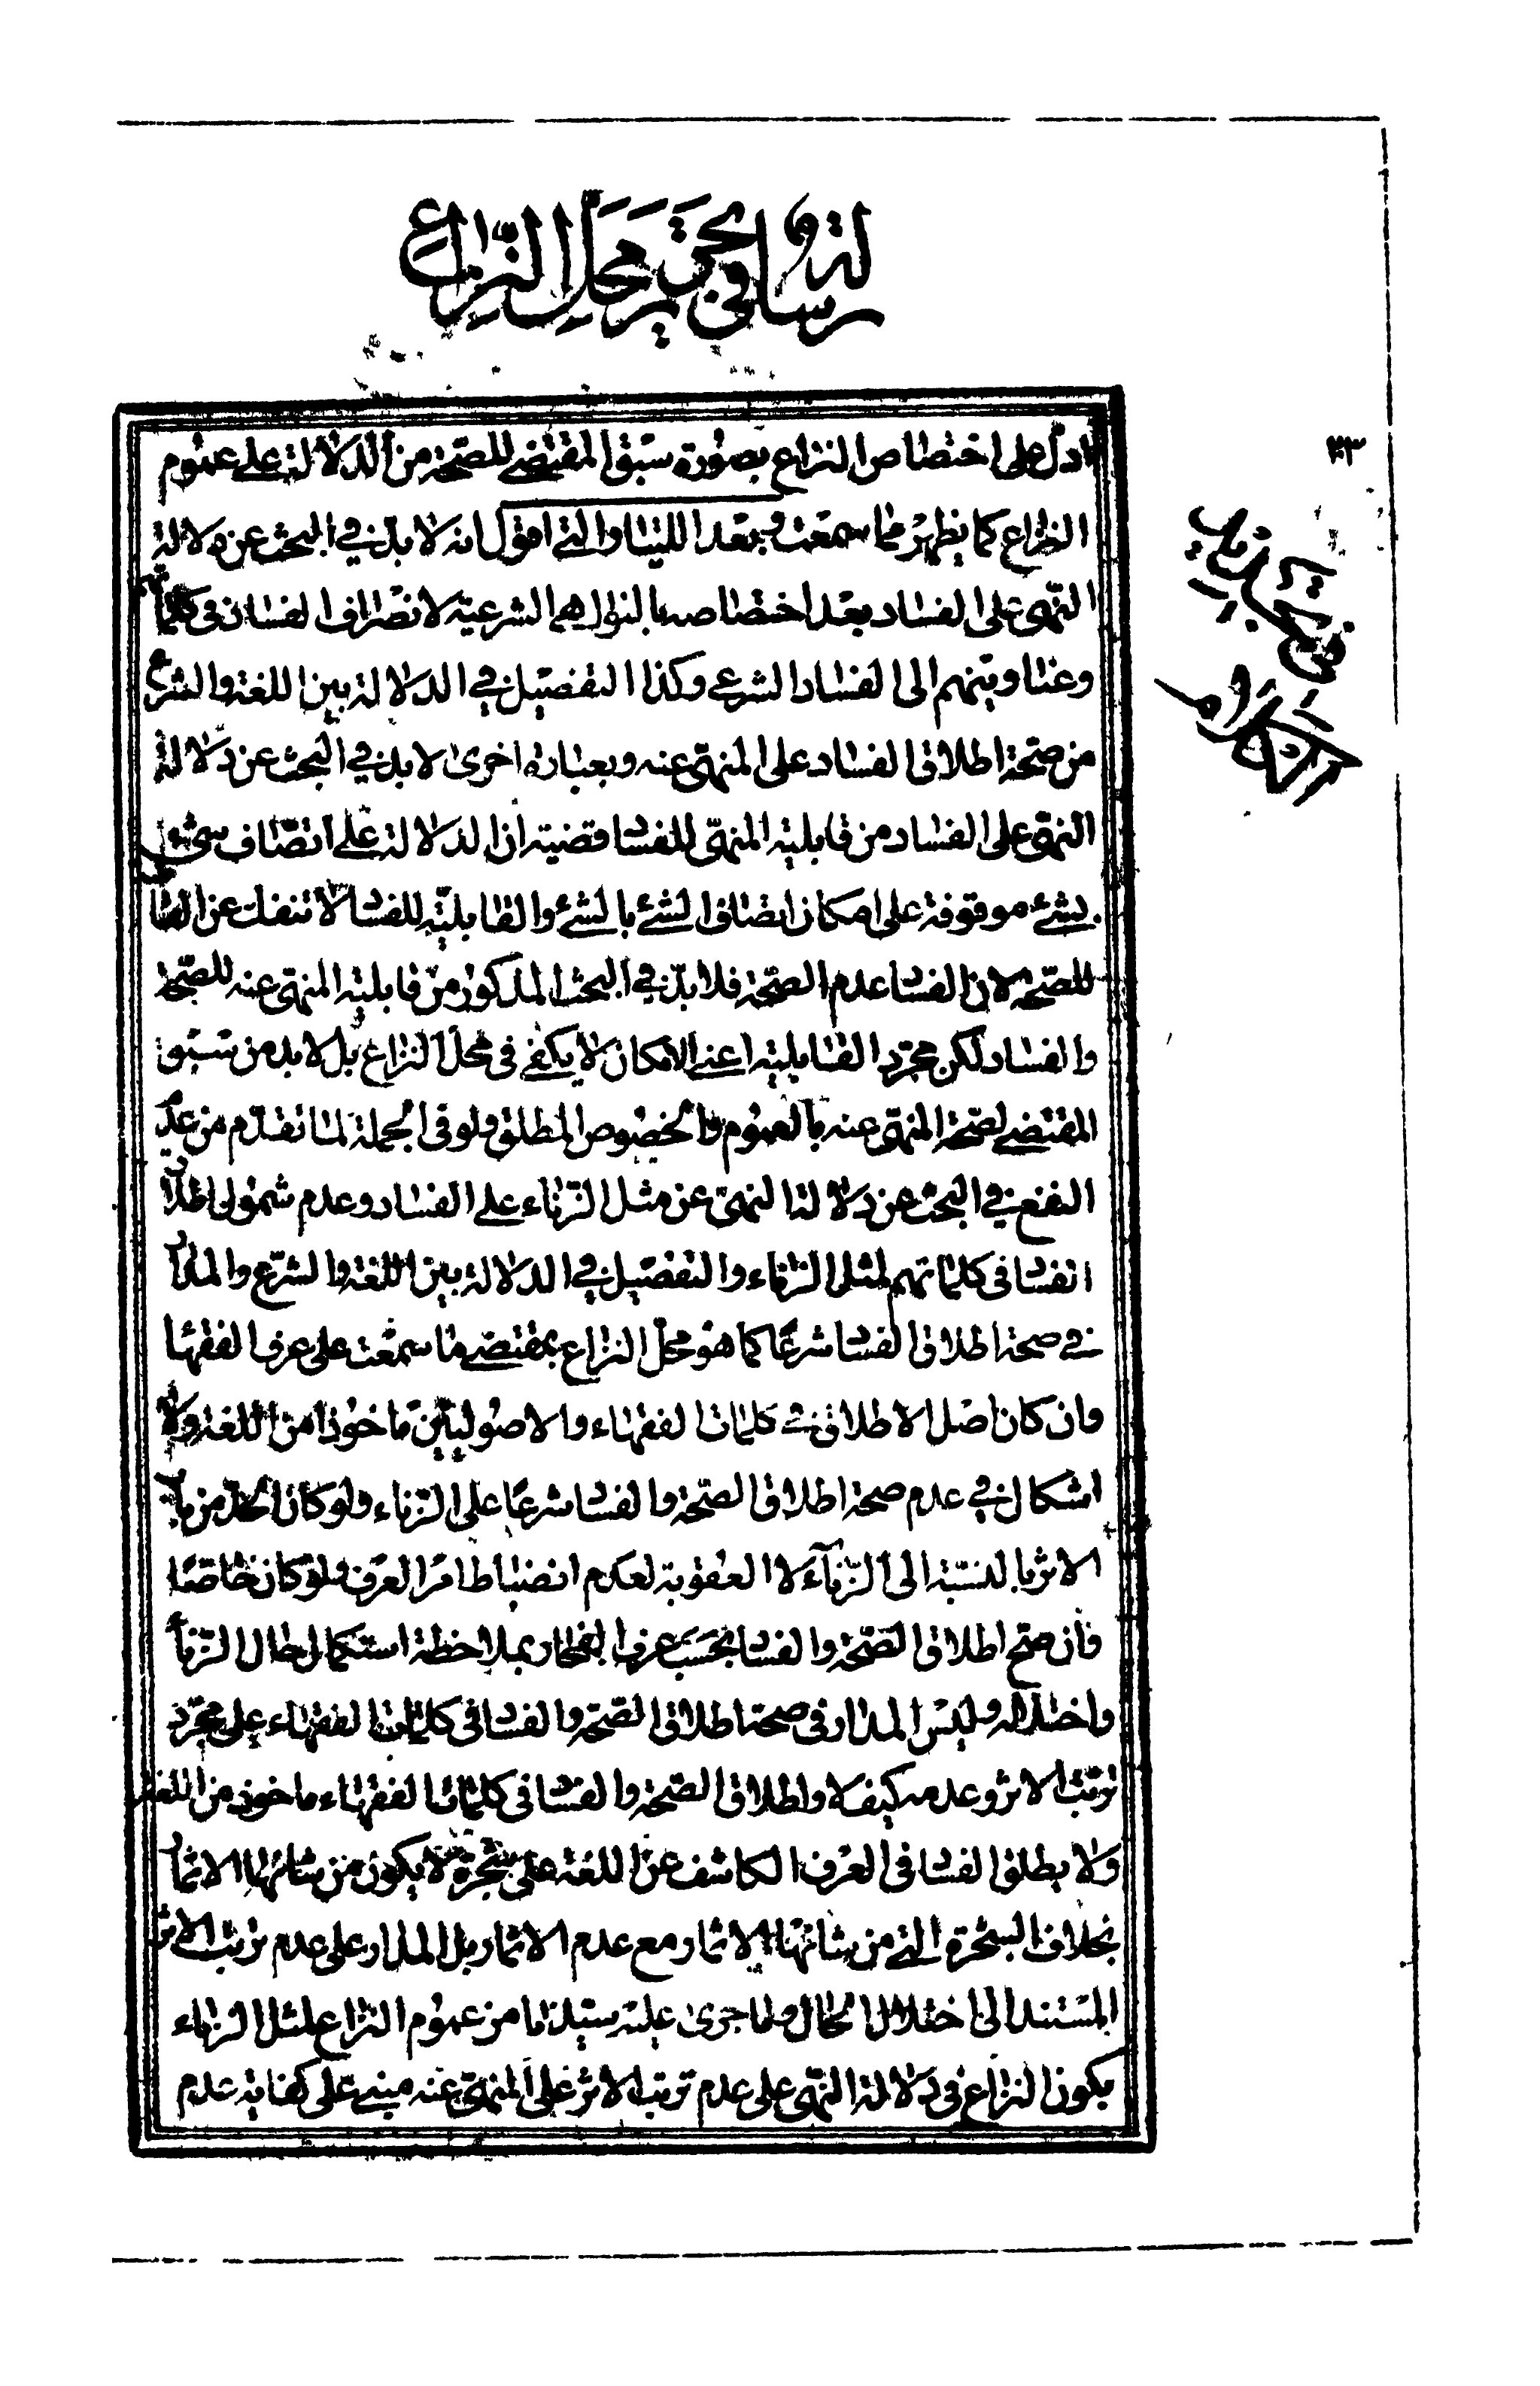 رسالة في تحرير محل النزاع
٢٣
في تحرير
الكلام
ما دل على اختصاص النزاع بصورة سبق المقتضى للصحة من الدلالة على عموم
النزاع كما يظهر مما سمعت وبعد اللتيا والتي اقول انه لا بد في البحث عن دلالة
النهى على الفساد بعد اختصاصه بالنواهى الشرعية لانصراف الفساد فى كلما
وعناوينهم الى الفساد الشرعي وكذا التفصيل في الدلالة بين اللغة والشرع
من صحة اطلاق الفساد على المنهى عنه وبعبارة اخرى لا بد في البحث عن دلالة
النهى على الفساد من قابلية المنهى للفسا قضية ان الدلالة على اتصاف شئ
بشئ موقوفة على امكان اتصاف الشئ بالشئ والقابلية للفسا لا تنفك عن القا
للصحة لان الفسا عدم الصحة فلا بد في البحث المذكور من قابلية المنهى عنه للصحة
والفساد لكن مجرد القابلية اعنى الامكان لا يكفى فى محل النزاع بل لا بد من سبق
المقتضى لصحة المنهى عنه بالعموم والخصوص المطلق ولو فى الجملة لما تقدم من عد
النفع في البحث عن دلالة النهى عن مثل الزناء على الفساد وعدم شمول اطلا
الفسا فى كلماتهم لمثل الزناء والتفصيل في الدلالة بين اللغة والشرع والمدا
في صحة اطلاق الفسا شرعا كما هو محل النزاع بمقتضى ما سمعت على عرف الفقها
وان كان اصل الاطلاق في كلمات الفقهاء والاصوليين ماخوذا من اللغة ولا
اشكال في عدم صحة اطلاق الصحة والفسا شرعا على الزناء ولو كان الحد من با
الاثر بالنسبة الى الزناء لا العقوبة لعدم انضباط امر العرف ولو كان خاصا
فان صح اطلاق الصحة والفسا بحسب عرف الفجار بملاحظة استكمال حال الزنا
واختلاله وليس المدار فى صحة اطلاق الصحة والفسا فى كلمات الفقهاء على مجرد
ترتب الاثر وعدمه كيف لا واطلاق الصحة والفسا فى كلمات الفقهاء ماخوذ من اللغة
ولا يطلق الفسا فى العرف الكاشف عن اللغة على شجرة لا يكون من شانها الاثما
بخلاف الشجرة التي من شانها الاثمار مع عدم الاثمار بل المدار على عدم ترتب الاثر
المستند الى اختلال الحال ولما جرى عليه سيدنا من عموم النزاع لمثل الزناء
يكون النزاع فى دلالة النهى على عدم ترتب الاثر على المنهى عنه مبنى على كفاية عدم